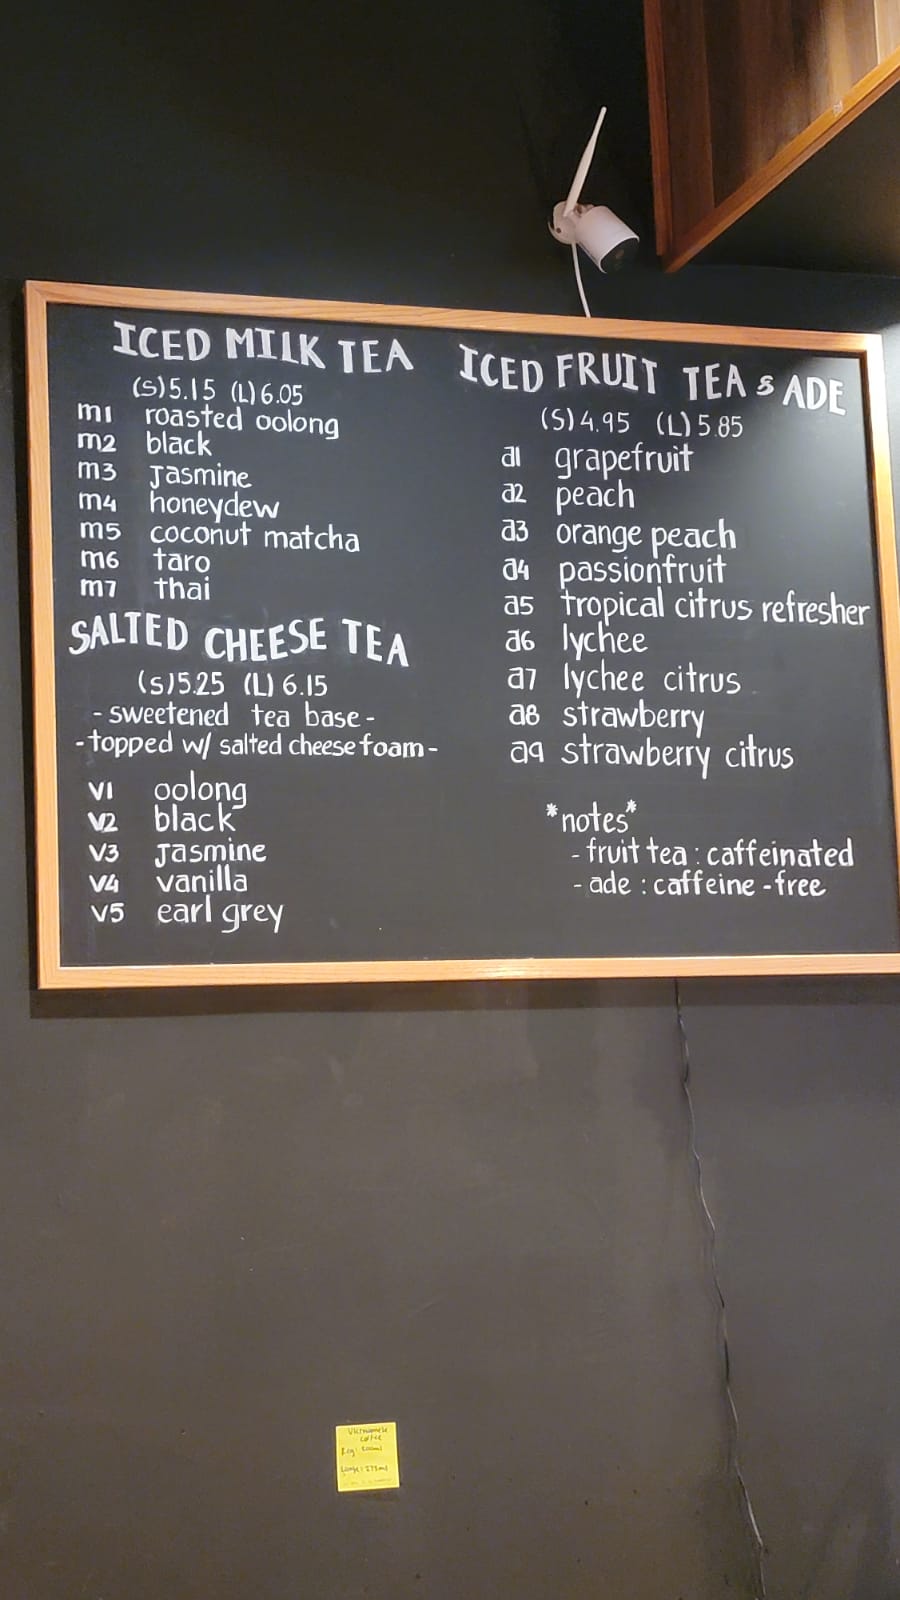 ICED MILK TEA
(S) 5.15 (L) 6.05
m1 roasted oolong
m2 black
m3 Jasmine
m4 honeydew
m5 coconut matcha
m6 taro
m7 thai
SALTED CHEESE TEA
(S) 5.25 (L) 6.15
- sweetened tea base -
- topped w/ salted cheese foam -
v1 oolong
v2 black
v3 Jasmine
v4 vanilla
v5 earl grey
ICED FRUIT TEA & ADE
(S) 4.95 (L) 5.85
a1 grapefruit
a2 peach
a3 orange peach
a4 passionfruit
a5 tropical citrus refresher
a6 lychee
a7 lychee citrus
a8 strawberry
a9 strawberry citrus
*notes*
- fruit tea : caffeinated
- ade : caffeine - free
Vietnamese
coffee
Reg: 200ml
Large: 275ml